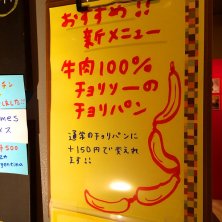 おすすめ!!
新メニュー
牛肉100%
チョリソーの
チョリパン
通常のチョリパンに
+150円で変えれ
ます!!
mes
ス
¥500
gentina